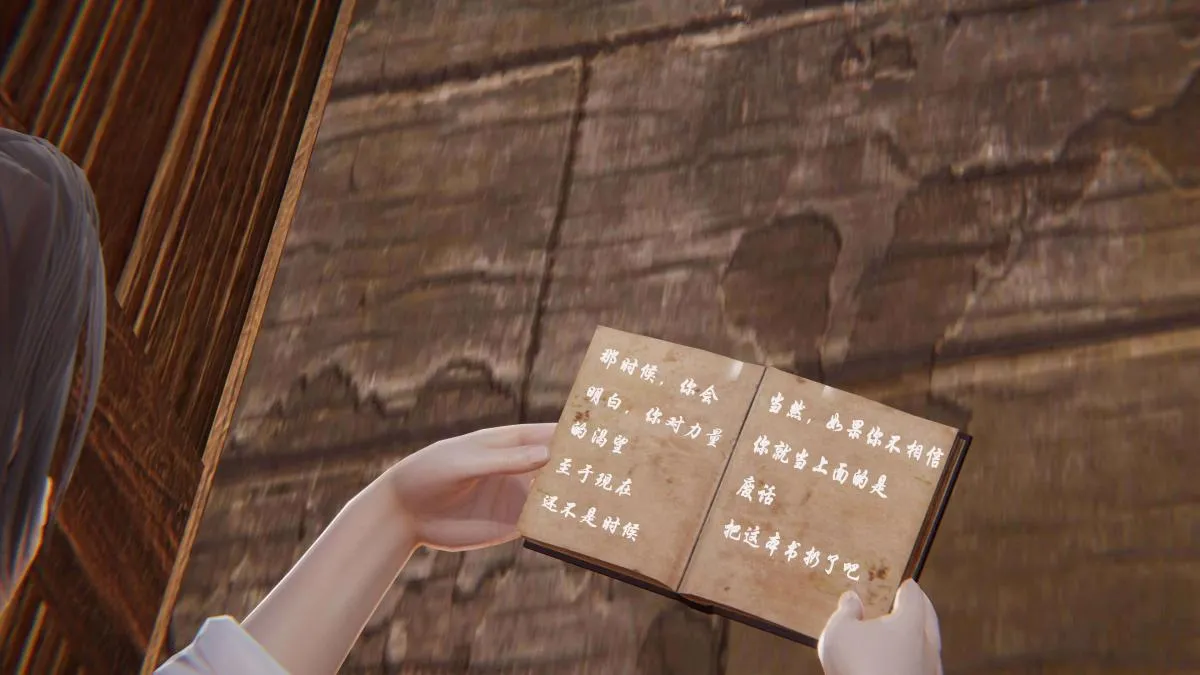 那时候，你会
明白，你对力量
的渴望
至于现在
还不是时候
当然，如果你不相信
你就当上面的是
废话
把这本书扔了吧